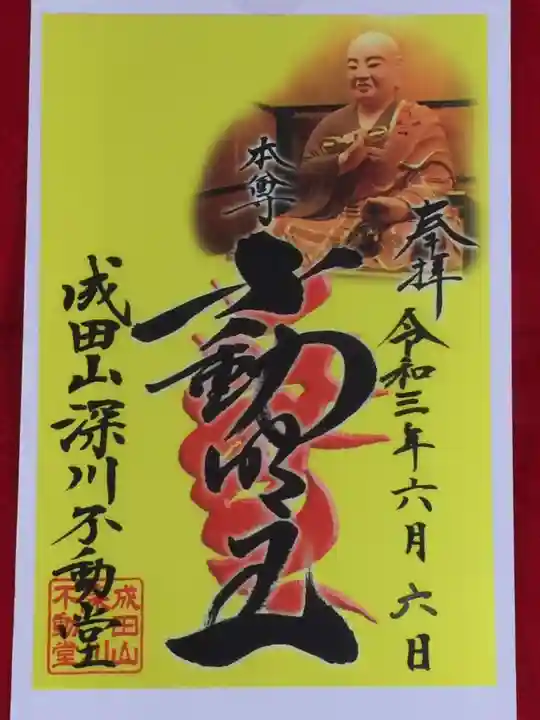 奉拝
令和三年六月六日
本尊
不動明王
成田山深川不動堂
成田山
不動堂